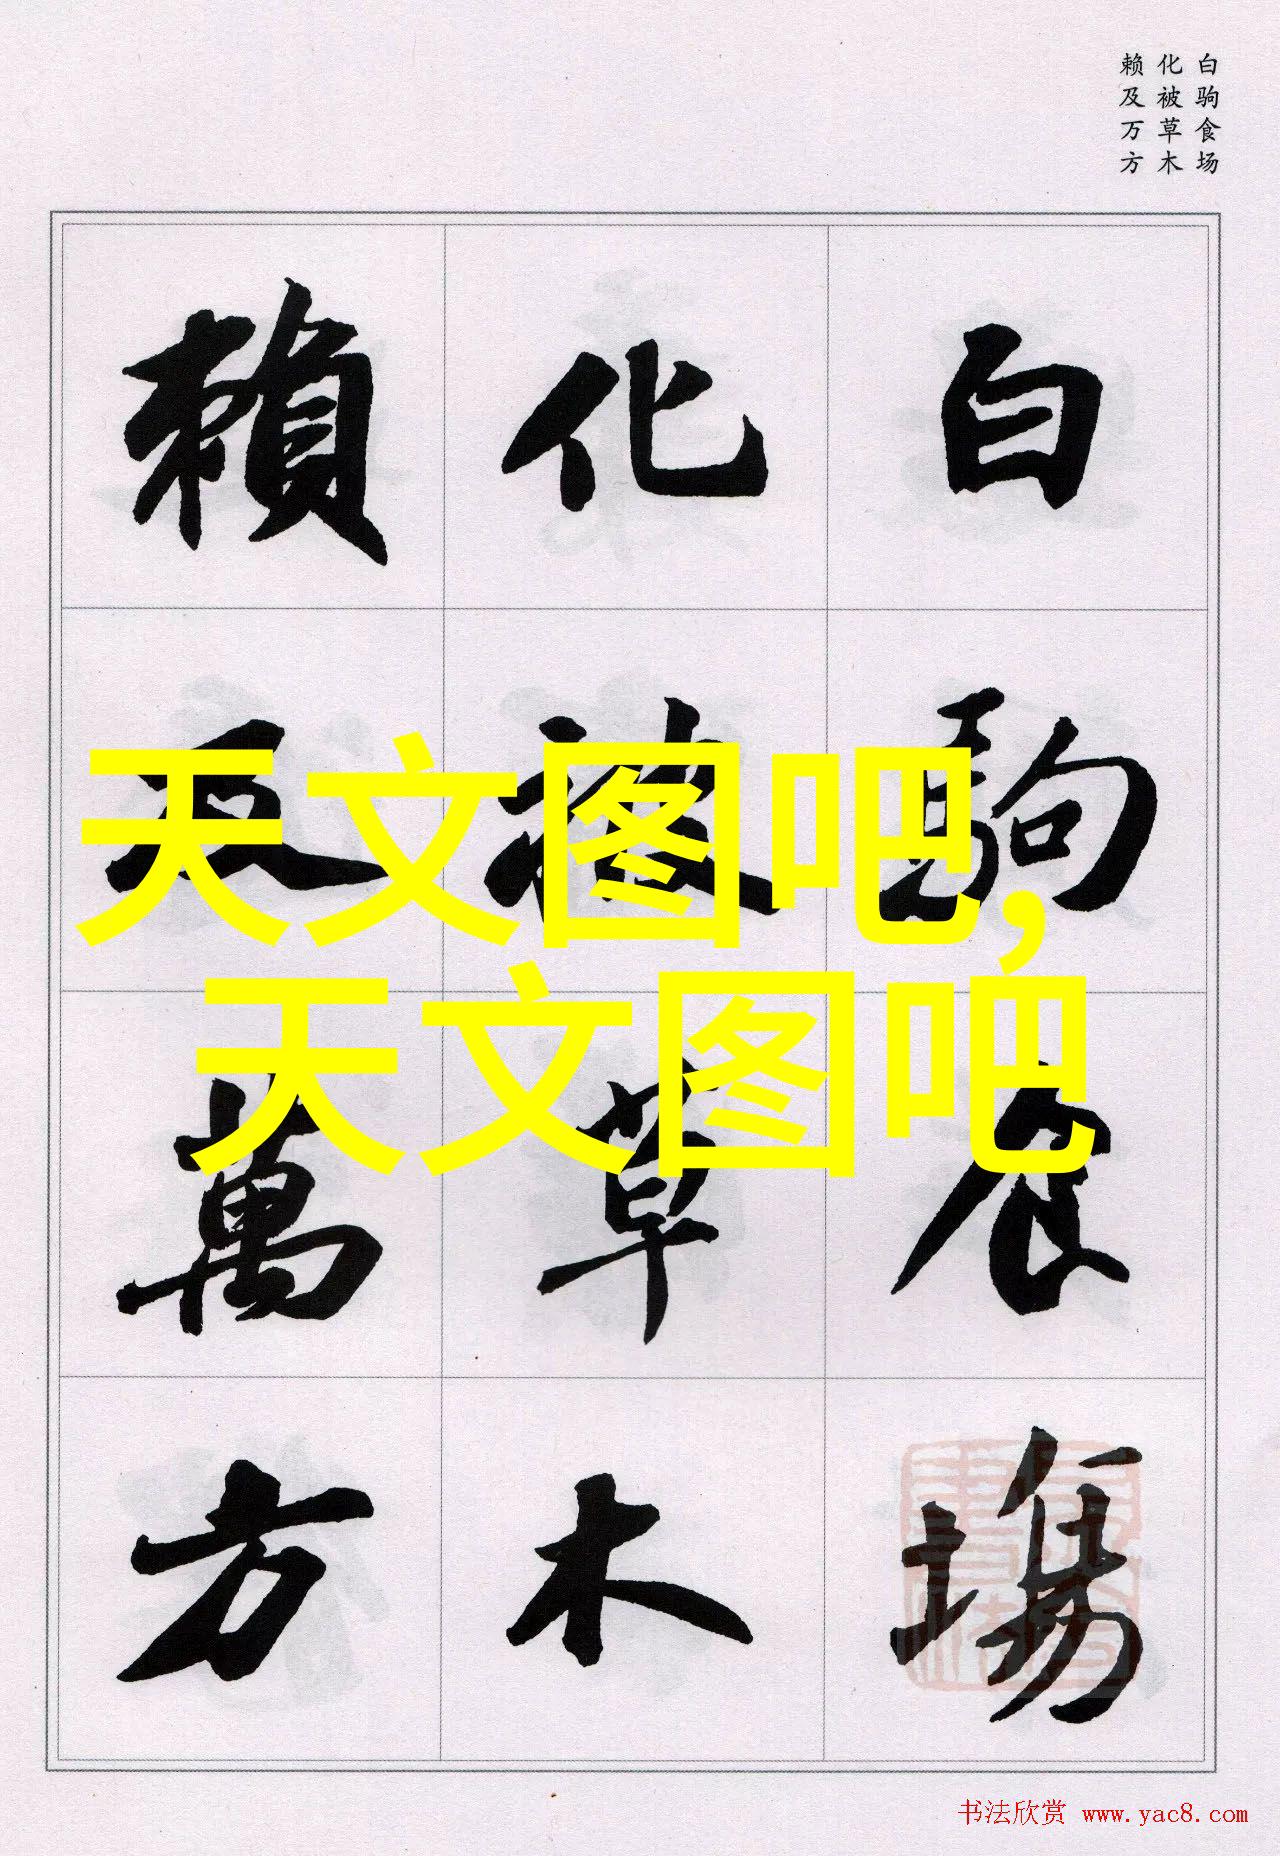 白驹食场
化被草木
赖及万方
白駒食場
化被草木
賴及萬方
天文图吧,
天文图吧
书法欣赏 www.yac8.com